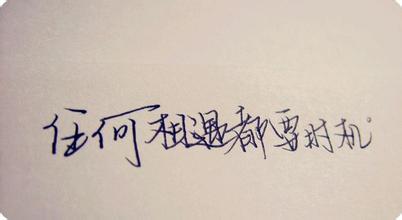 任何相遇都要时机。